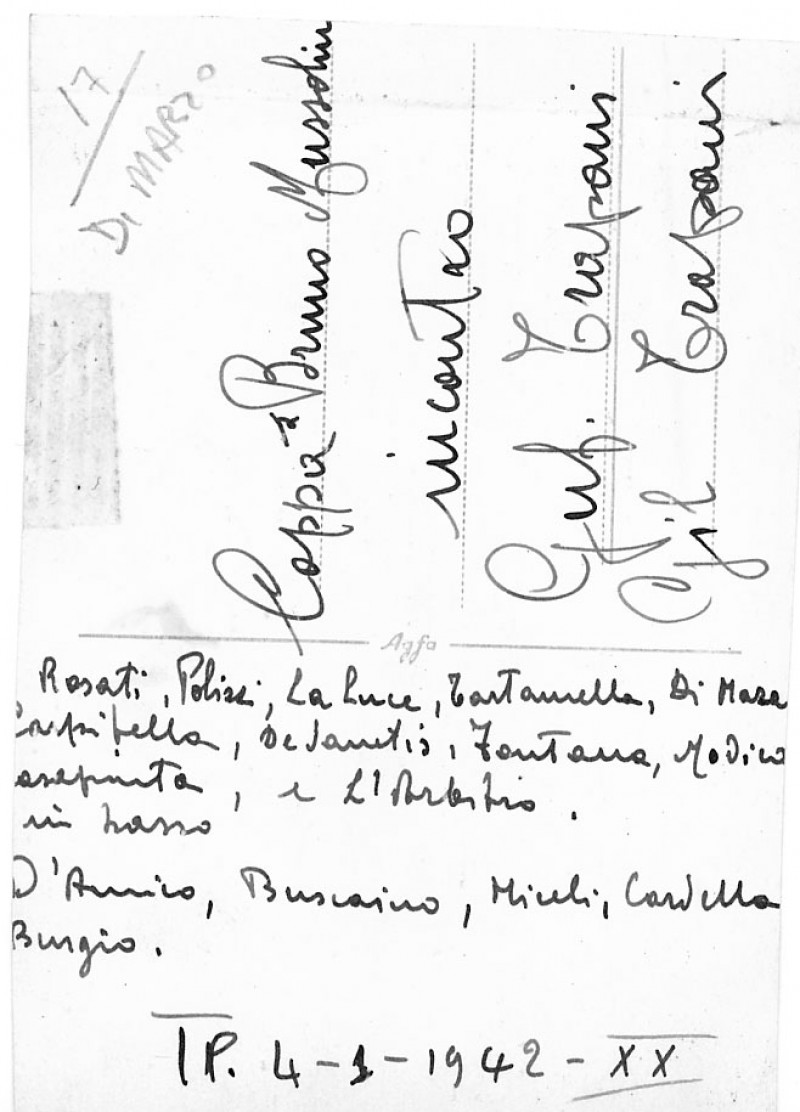 17
DI MARZO
Coppa Bruno Mussolini
incontro
Guf. Trapani
Gil Trapani
Agfa
Rosati, Polizzi, La Luce, Tartamella, Di Mara
, De Santis, Fontana, Modica
, e L'Arbitro.
in basso
D'Amico, Buscaino, Miceli, Cardella
Burgio.
TP. 4-1-1942-XX